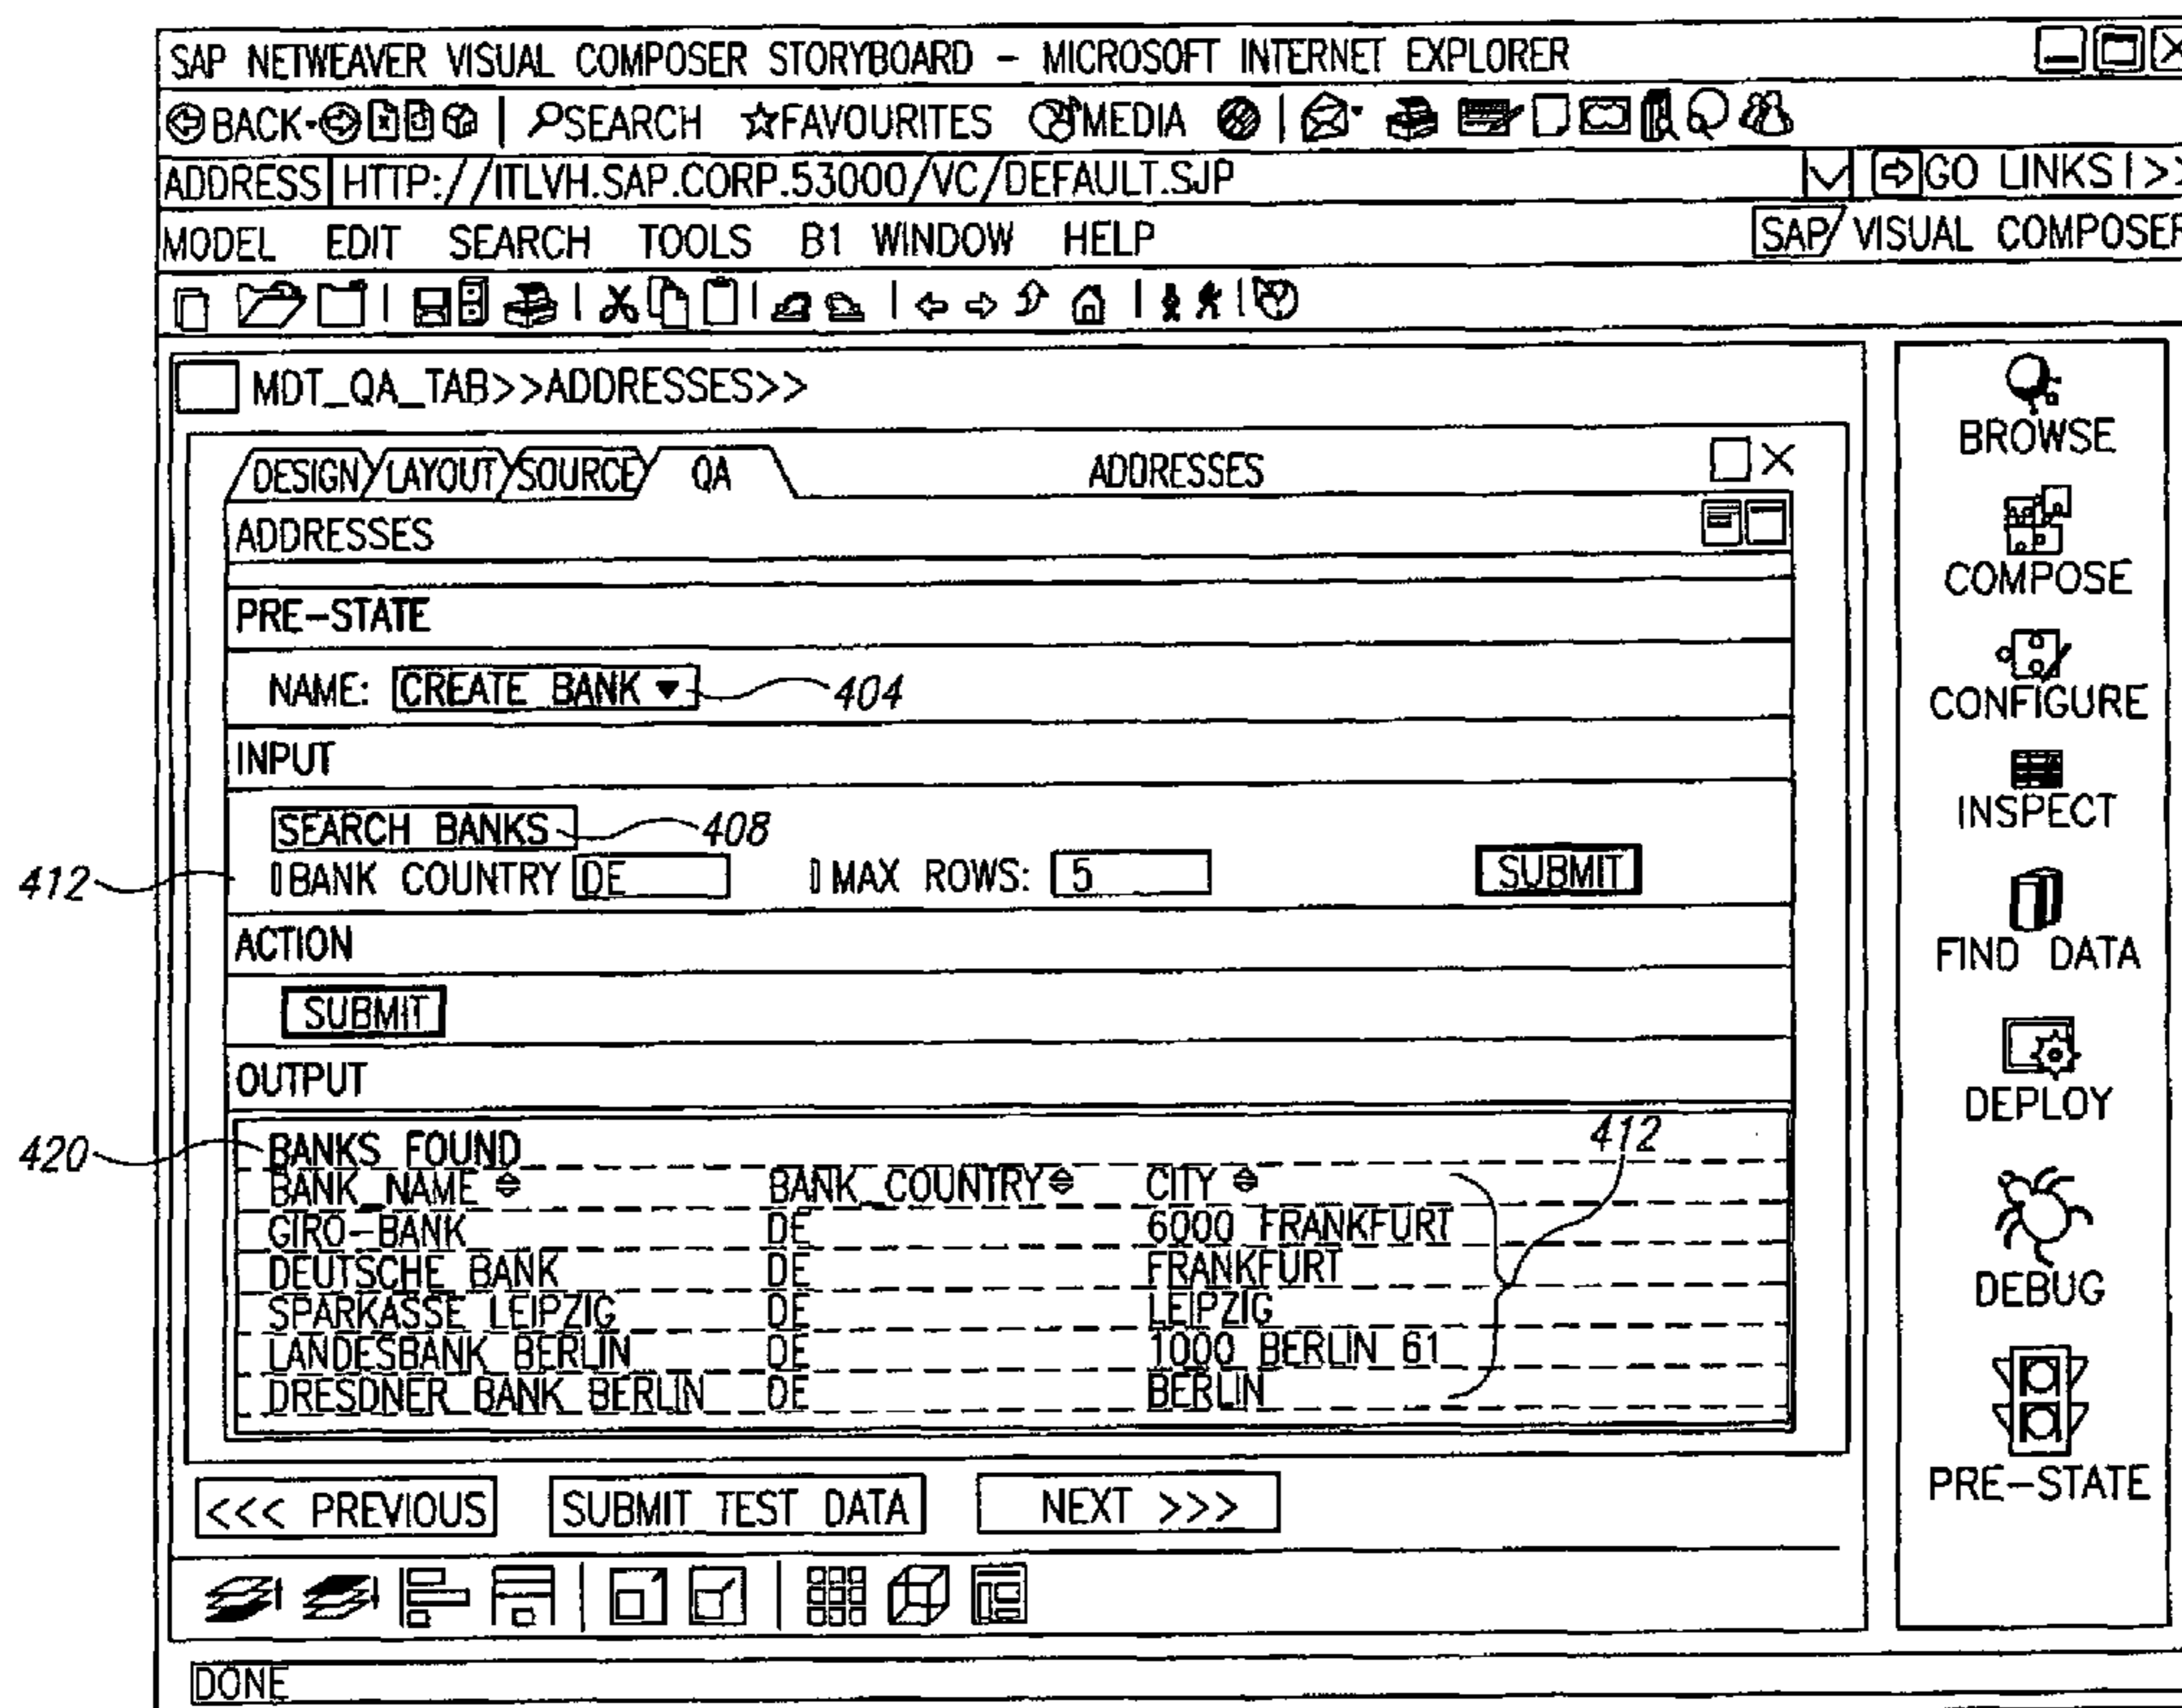 SAP NETWEAVER VISUAL COMPOSER STORYBOARD - MICROSOFT INTERNET EXPLORER
BACK SEARCH FAVOURITES MEDIA
ADDRESS HTTP://ITLVH.SAP.CORP.53000/VC/DEFAULT.SJP GO LINKS >>
MODEL EDIT SEARCH TOOLS B1 WINDOW HELP SAP VISUAL COMPOSER
MDT_QA_TAB>>ADDRESSES>>
DESIGN LAYOUT SOURCE QA ADDRESSES
ADDRESSES
PRE-STATE
NAME: CREATE BANK 404
INPUT
SEARCH BANKS 408
412 BANK COUNTRY DE MAX ROWS: 5 SUBMIT
ACTION
SUBMIT
OUTPUT
420 BANKS FOUND 412
BANK_NAME BANK_COUNTRY CITY
GIRO-BANK DE 6000 FRANKFURT
DEUTSCHE BANK DE FRANKFURT
SPARKASSE LEIPZIG DE LEIPZIG
LANDESBANK BERLIN DE 1000 BERLIN 61
DRESDNER BANK BERLIN DE BERLIN
<<< PREVIOUS SUBMIT TEST DATA NEXT >>>
BROWSE
COMPOSE
CONFIGURE
INSPECT
FIND DATA
DEPLOY
DEBUG
PRE-STATE
DONE